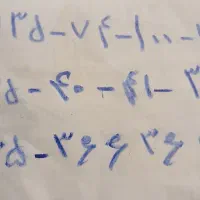 ۱۳۵-۷۴-۱۰۰-
۵-۴۰-۴۱-۳
۵-۳۶۶۳۶